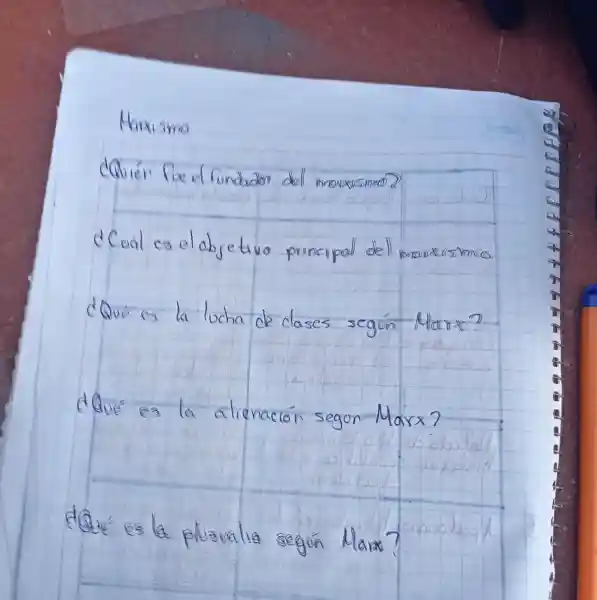 Marxismo
¿Quién fue el fundador del marxismo?
¿Cual es el objetivo principal del marxismo
¿Qué es la lucha de clases según Marx?
¿Qué es la alienación segon Marx?
¿Qué es la plusvalia según Marx?